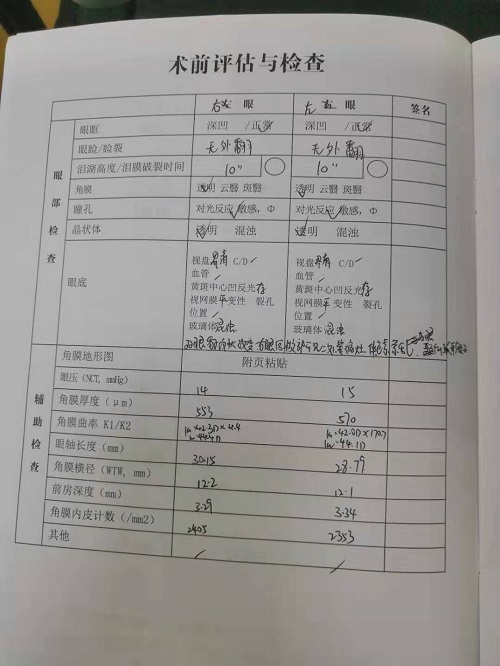 术前评估与检查
右 眼 左 眼 签名
眼部检查
眼眶 深凹 /正常 深凹 /正常
眼睑/睑裂 无外翻 无外翻
泪湖高度/泪膜破裂时间 10" 10"
角膜 透明 云翳 斑翳 透明 云翳 斑翳
瞳孔 对光反应 敏感，Φ 对光反应 敏感，Φ
晶状体 透明 混浊 透明 混浊
眼底
视盘 C/D / 视盘 C/D /
血管 / 血管 /
黄斑中心凹反光存 黄斑中心凹反光存
视网膜平 变性 裂孔 视网膜平 变性 裂孔
位置 / 位置 /
玻璃体混浊 玻璃体混浊
双眼
辅助检查
角膜地形图 附页粘贴
眼压(NCT, mmHg) 14 15
角膜厚度（μm） 553 570
角膜曲率 K1/K2
眼轴长度（mm） 30.15 28.79
角膜横径（WTW, mm） 12.2 12.1
前房深度（mm） 3.29 3.34
角膜内皮计数（/mm2） 2405 2353
其他 / /